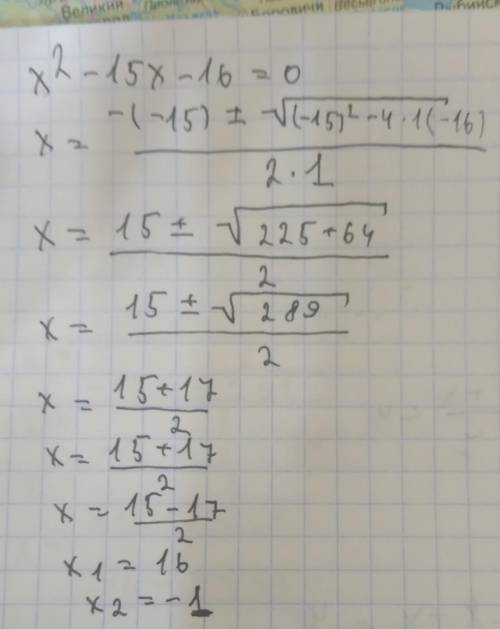 Великий
x² - 15x - 16 = 0
x = (-(-15) ± √((-15)² - 4·1(-16))) / (2·1)
x = (15 ± √(225+64)) / 2
x = (15 ± √289) / 2
x = (15+17) / 2
x = (15+17) / 2
x = (15-17) / 2
x₁ = 16
x₂ = -1